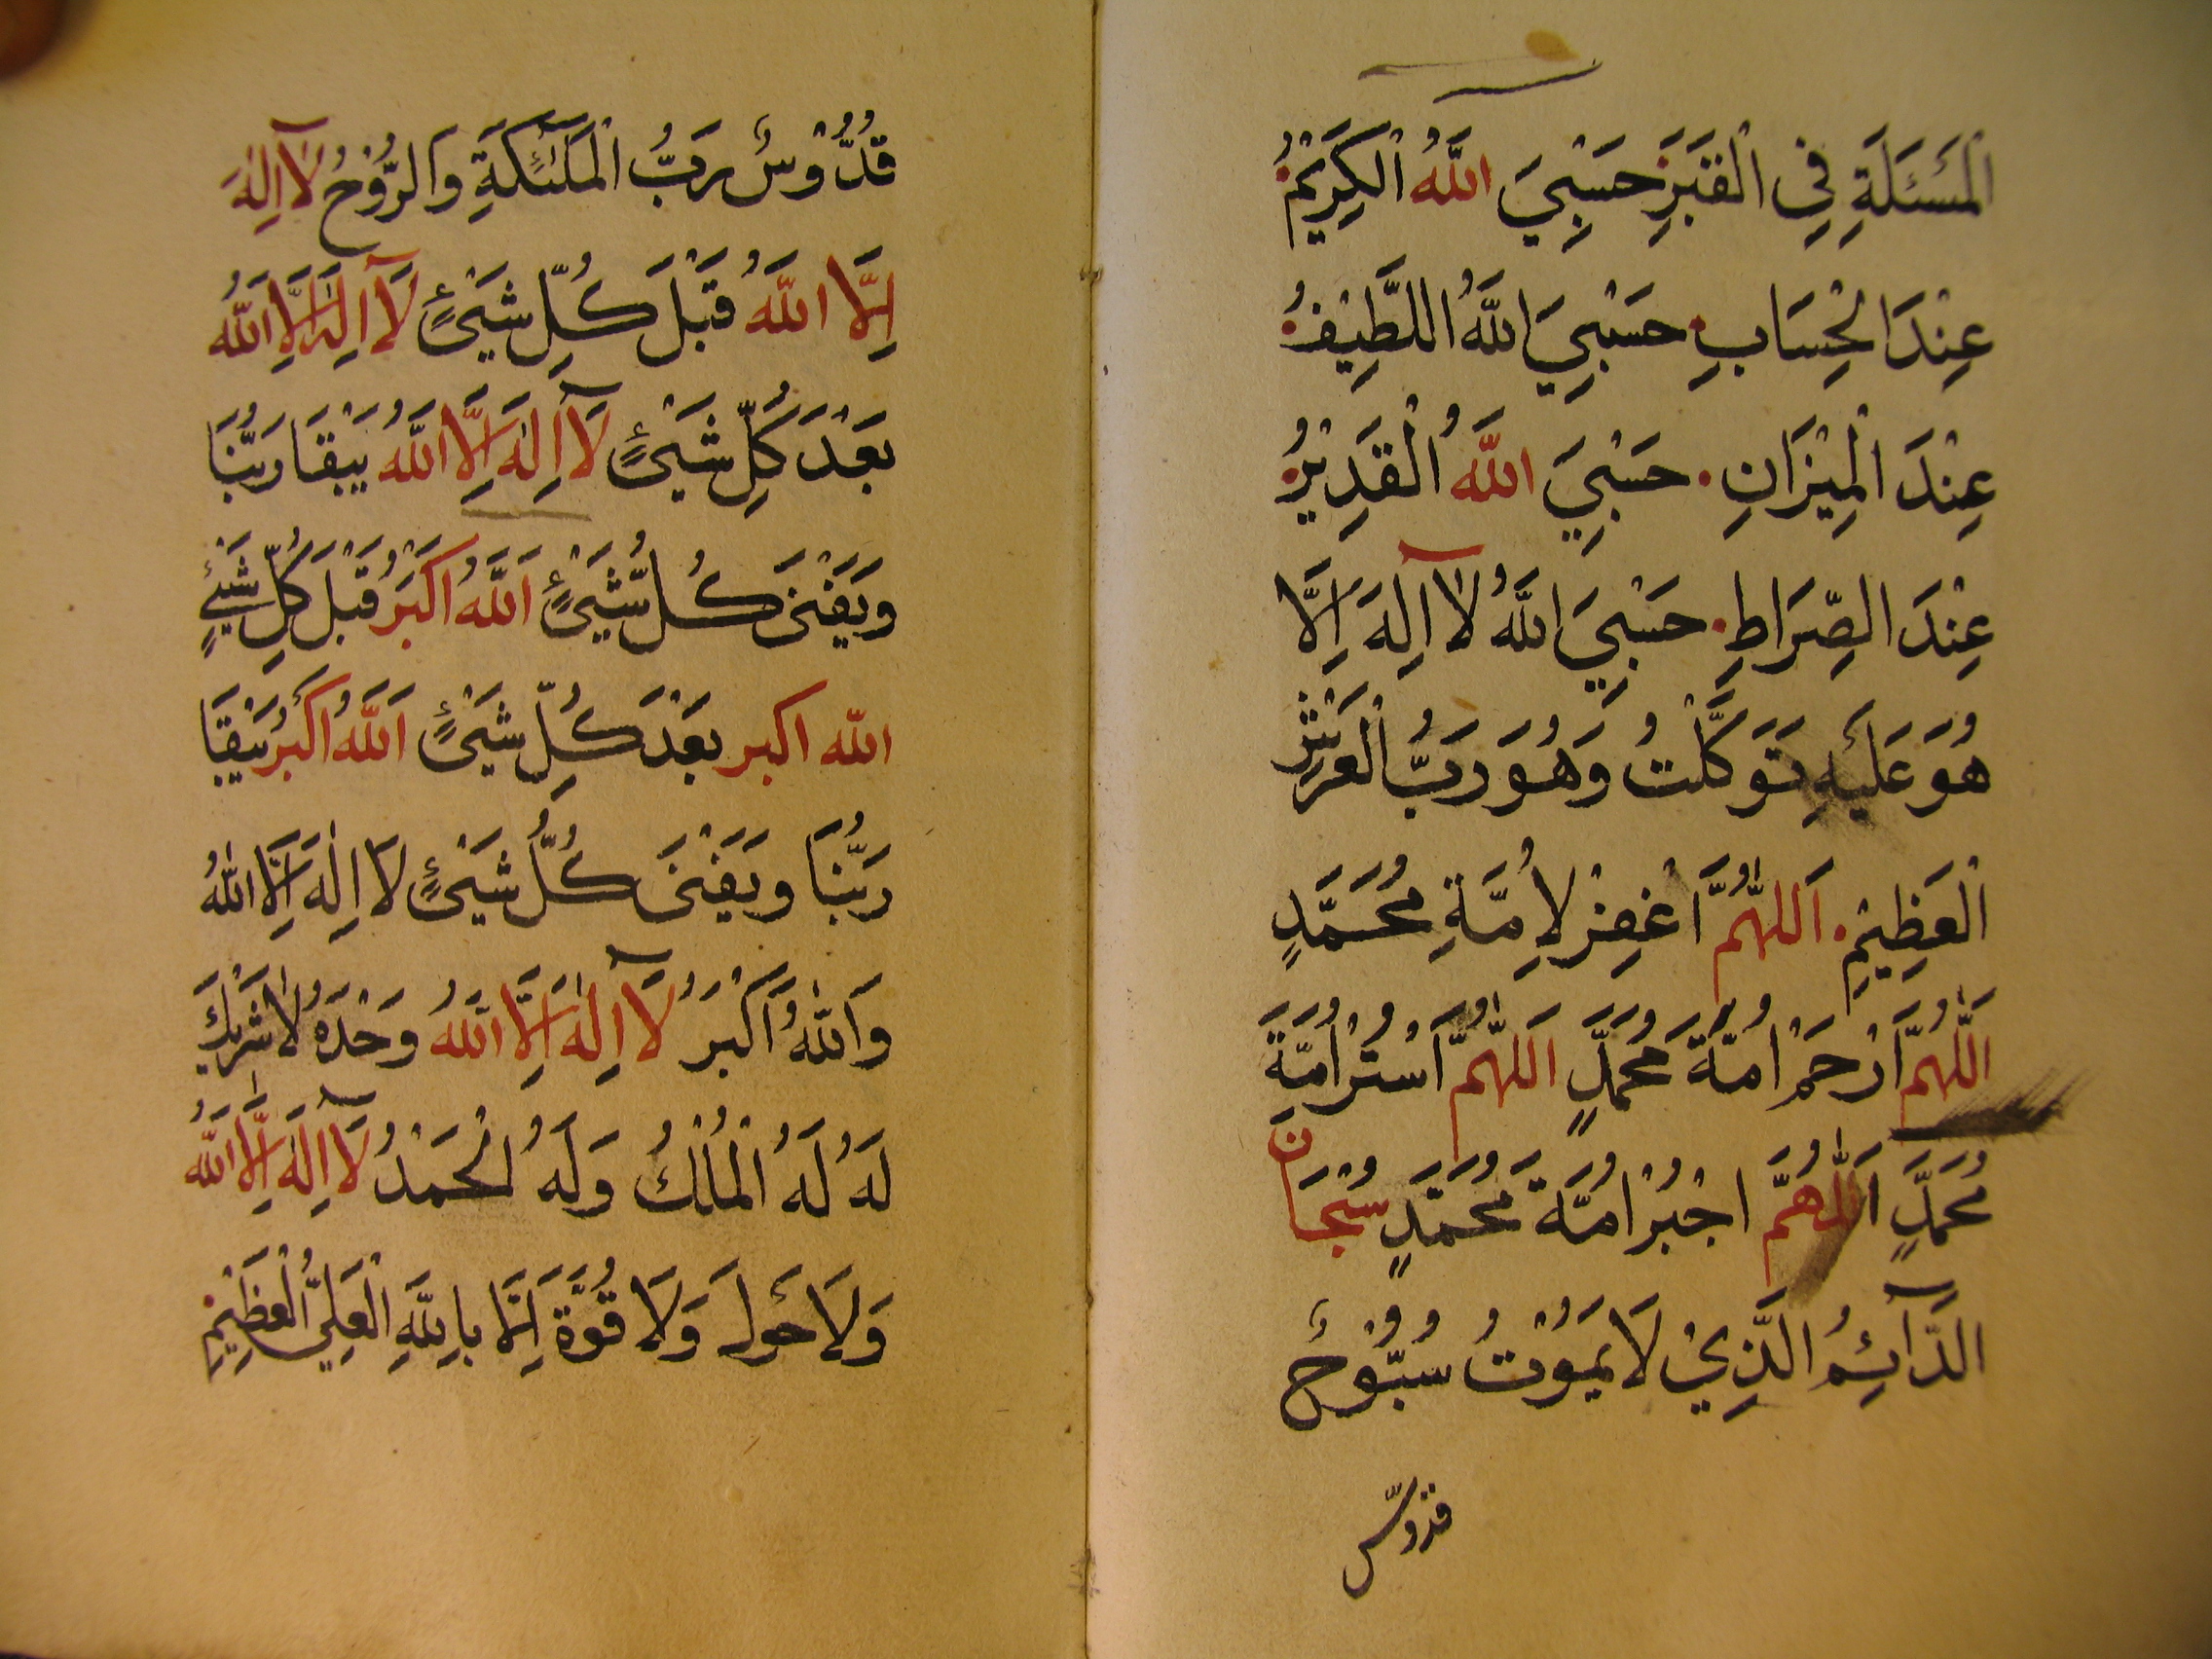 الْمَسْئَلَةِ فِي الْقَبْرِ حَسْبِيَ اللَّهُ الْكَرِيْمُ
عِنْدَ الْحِسَابِ حَسْبِيَ اللَّهُ اللَّطِيْفُ
عِنْدَ الْمِيْزَانِ حَسْبِيَ اللَّهُ الْقَدِيْرُ
عِنْدَ الصِّرَاطِ حَسْبِيَ اللَّهُ لَآ اِلٰهَ اِلَّا
هُوَ عَلَيْهِ تَوَكَّلْتُ وَهُوَ رَبُّ الْعَرْشِ
الْعَظِيْمِ اَللّٰهُمَّ اغْفِرْ لِاُمَّةِ مُحَمَّدٍ
اَللّٰهُمَّ ارْحَمْ اُمَّةَ مُحَمَّدٍ اَللّٰهُمَّ اسْتُرْ اُمَّةَ
مُحَمَّدٍ اَللّٰهُمَّ اجْبُرْ اُمَّةَ مُحَمَّدٍ سُبْحَانَ
الدَّآئِمُ الَّذِيْ لَا يَمُوْتُ سُبُّوْحٌ
قدوس
قُدُّوْسٌ رَبُّ الْمَلٰئِكَةِ وَالرُّوْحُ لَآ اِلٰهَ
اِلَّا اللَّهُ قَبْلَ كُلِّ شَيْئٍ لَآ اِلٰهَ اِلَّا اللَّهُ
بَعْدَ كُلِّ شَيْئٍ لَآ اِلٰهَ اِلَّا اللَّهُ يَبْقَا رَبُّنَا
وَيَفْنَى كُلُّ شَيْئٍ اَللَّهُ اَكْبَرُ قَبْلَ كُلِّ شَيْئٍ
الله اكبر بَعْدَ كُلِّ شَيْئٍ اَللَّهُ اَكْبَرُ يَبْقَا
رَبُّنَا وَيَفْنَى كُلُّ شَيْئٍ لَا اِلٰهَ اِلَّا اللّٰهُ
وَاللّٰهُ اَكْبَرُ لَآ اِلٰهَ اِلَّا اللَّهُ وَحْدَهُ لَا شَرِيْكَ
لَهُ لَهُ الْمُلْكُ وَلَهُ الْحَمْدُ لَآ اِلٰهَ اِلَّا اللَّهُ
وَلَا حَوْلَ وَلَا قُوَّةَ اِلَّا بِاللَّهِ الْعَلِيِّ الْعَظِيْمِ